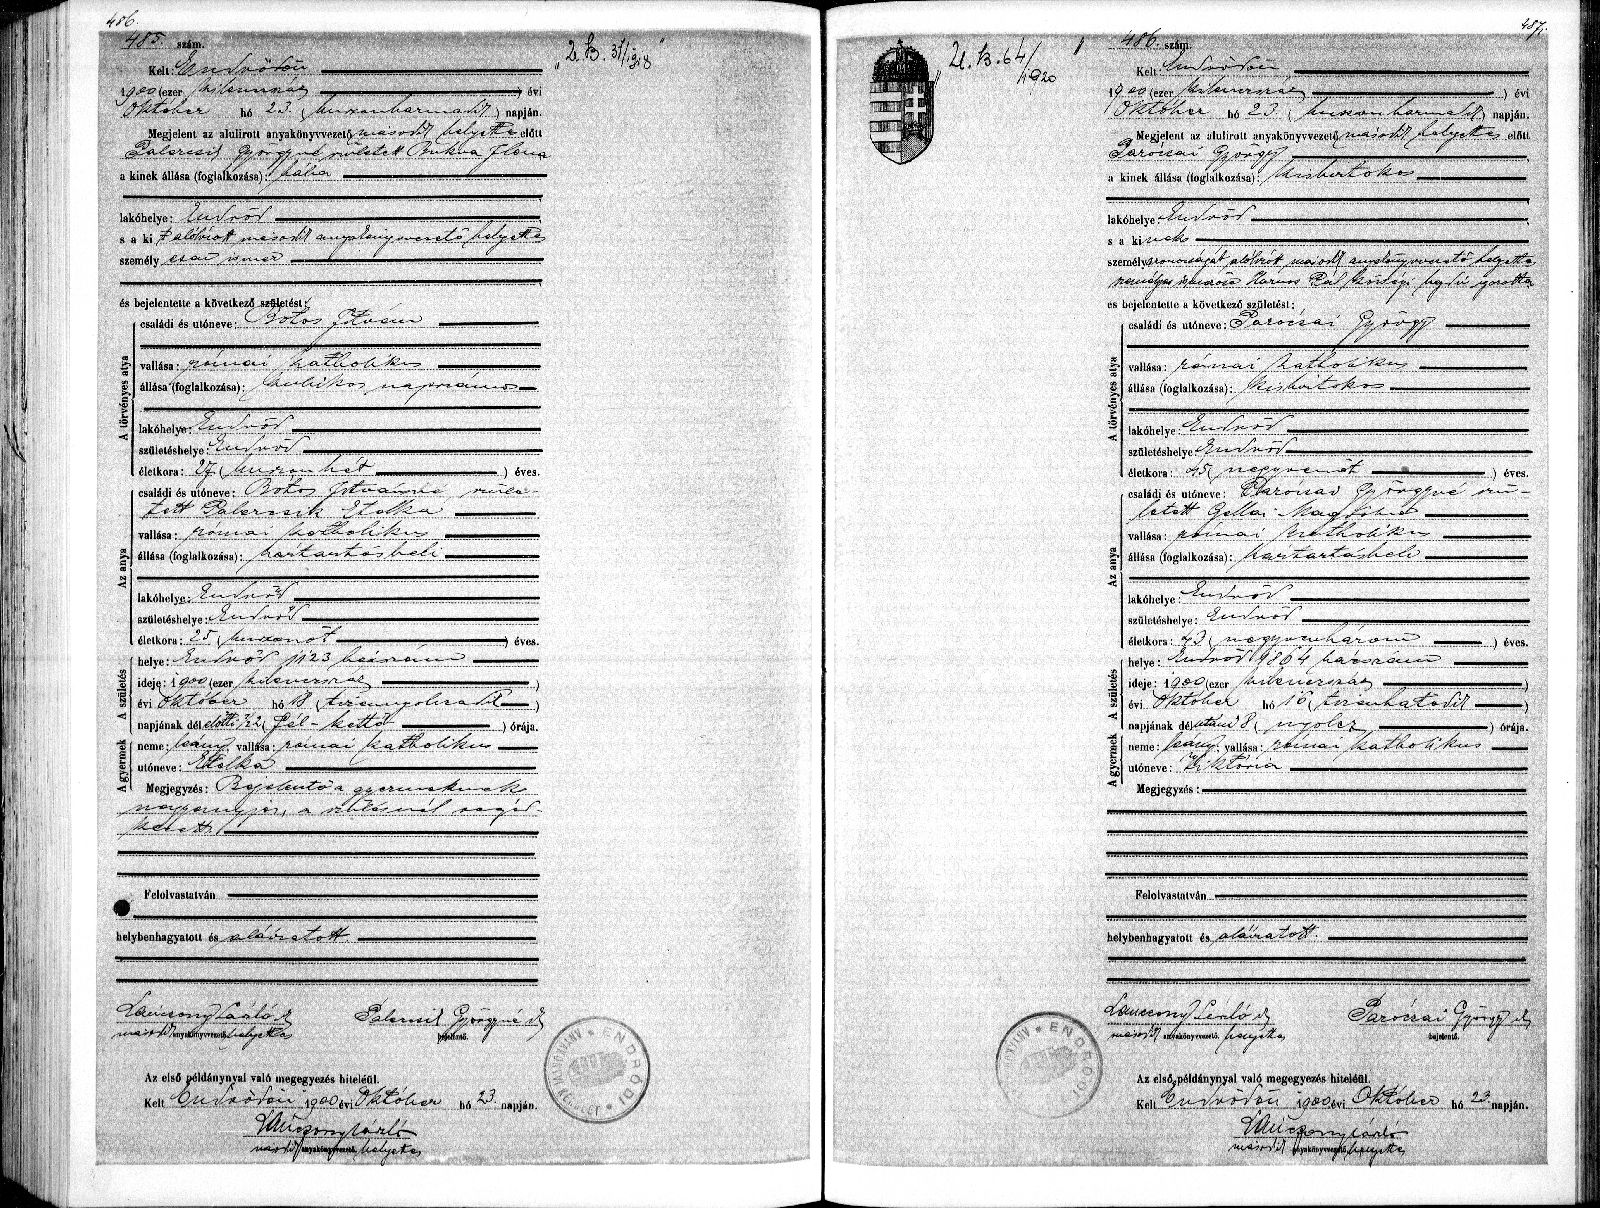 486.
485. szám.
Kelt Endrődön
1900 (ezer kilencszáz) évi
Október hó 23. (huszonharmadik) napján.
Megjelent az alulirott anyakönyvvezető második helyettes előtt
Palercsik Györgyné született Bukva Ilona
a kinek állása (foglalkozása): bába
lakóhelye: Endrőd
s a ki t alólirott második anyakönyvvezető helyettes
személyesen ismer
és bejelentette a következő születést:
A törvényes atya
családi és utóneve: Botos István
vallása: római katholikus
állása (foglalkozása): kubikos napszámos
lakóhelye: Endrőd
születéshelye: Endrőd
életkora: 27 (huszonhét) éves.
Az anya
családi és utóneve: Botos Istvánné szüle-
tett Palercsik Etelka
vallása: római katholikus
állása (foglalkozása): háztartásbeli
lakóhelye: Endrőd
születéshelye: Endrőd
életkora: 25 (huszonöt) éves.
A születés
helye: Endrőd 1123 házszám
ideje: 1900 (ezer kilencszáz)
évi Október hó 18 (tizennyolcadik)
napjának dél előtti 1/2 2 (fél-kettő) órája.
A gyermek
neme: leány, vallása: római katholikus
utóneve: Etelka
Megjegyzés: Bejelentő a gyermeknek
nagyanyja, a szülésnél segéd-
kezett
Felolvastatván
helybenhagyatott és aláiratott.
Palercsik Györgyné
második anyakönyvvezető helyettes
bejelentő.
Az első példánynyal való megegyezés hiteléül.
Kelt Endrődön 1900 évi Október hó 23. napján.
második anyakönyvvezető helyettes
„U. B. 31/1918"
ENDRŐDI
487.
U. B. 64/1920
486. szám.
Kelt Endrődön
1900 (ezer kilencszáz) évi
Október hó 23. (huszonharmadik) napján.
Megjelent az alulirott anyakönyvvezető második helyettes előtt
Parócsai György
a kinek állása (foglalkozása): kisbirtokos
lakóhelye: Endrőd
s a kinek
személyazonosságát alólirott második anyakönyvvezető helyettes
személyes ismerőse Harnos Pál községi hajdu igazolta
és bejelentette a következő születést:
A törvényes atya
családi és utóneve: Parócsai György
vallása: római katholikus
állása (foglalkozása): kisbirtokos
lakóhelye: Endrőd
születéshelye: Endrőd
életkora: 45 (negyvenöt) éves.
Az anya
családi és utóneve: Parócsai Györgyné szü-
letett Gellai Magdolna
vallása: római katholikus
állása (foglalkozása): háztartásbeli
lakóhelye: Endrőd
születéshelye: Endrőd
életkora: 43 (negyvenhárom) éves.
A születés
helye: Endrőd 1864 házszám
ideje: 1900 (ezer kilencszáz)
évi Október hó 16 (tizenhatodik)
napjának dél utáni 8 (nyolcz) órája.
A gyermek
neme: leány, vallása: római katholikus
utóneve: Viktória
Megjegyzés:
Felolvastatván
helybenhagyatott és aláiratott.
Parócsai György
második anyakönyvvezető. helyettes
bejelentő.
Az első példánynyal való megegyezés hiteléül.
Kelt Endrődön 1900 évi Október hó 23. napján.
második anyakönyvvezető helyettes
ENDRŐDI